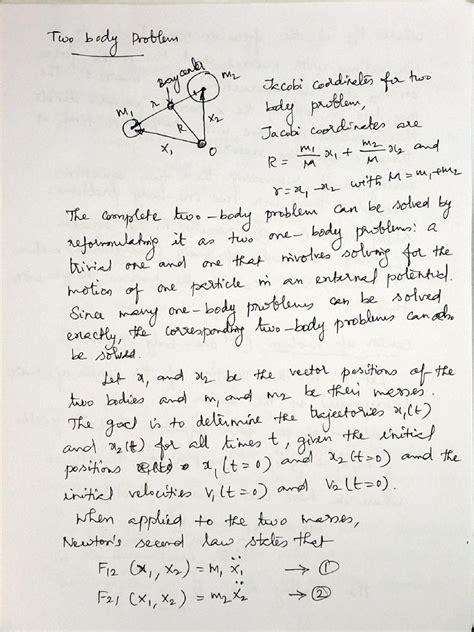 Two body Problem
Bary center
m2
M1
r
R
x2
x1
O
Jacobi coordinates for two
body problem,
Jacobi coordinates are
R = m1/M x1 + m2/M x2 and
r = x1 - x2 with M = m1 + m2
The complete two-body problem can be solved by
reformulating it as two one-body problems: a
trivial one and one that involves solving for the
motion of one particle in an external potential.
Since many one-body problems can be solved
exactly, the corresponding two-body problems can also
be solved.
Let x1 and x2 be the vector positions of the
two bodies and m1 and m2 be their masses.
The goal is to determine the trajectories x1(t)
and x2(t) for all times t, given the initial
positions x1(t=0) and x2(t=0) and the
initial velocities v1(t=0) and v2(t=0).
When applied to the two masses,
Newton's second law states that
F12 (x1, x2) = m1 ẍ1 → ①
F21 (x1, x2) = m2 ẍ2 → ②